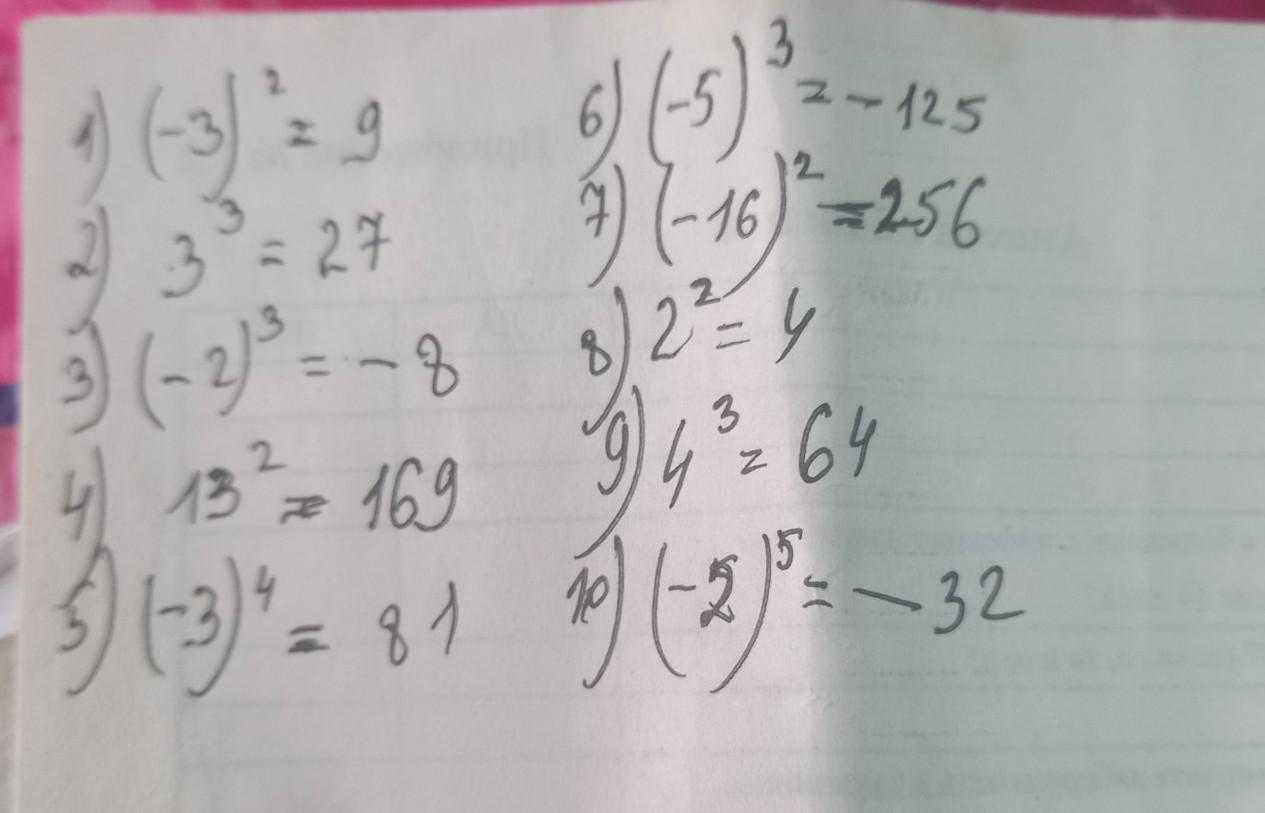 1) (-3)² = 9
2) 3³ = 27
3) (-2)³ = -8
4) 13² = 169
5) (-3)⁴ = 81
6) (-5)³ = -125
7) (-16)² = 256
8) 2² = 4
9) 4³ = 64
10) (-2)⁵ = -32